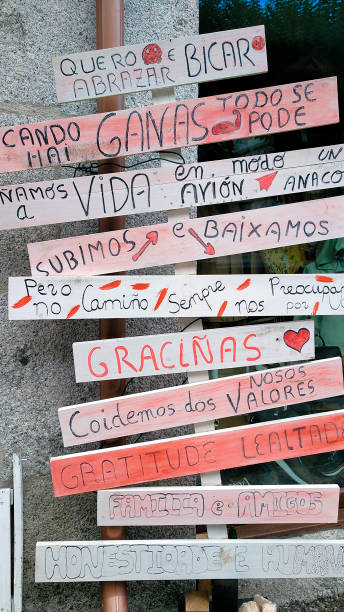 QUERO E BICAR
ABRAZAR
CANDO GANAS TODO SE
HAI PODE
ÑAMOS VIDA en modo UN
a AVIÓN ANACO
SUBIMOS e BAIXAMOS
Pero Camiño Sempre Preocupan
no nos por
GRACIÑAS
Coidemos dos VALORES
NOSOS
GRATITUDE LEALTAD
FAMILIA e AMIGOS
HONESTIDADE E HUM